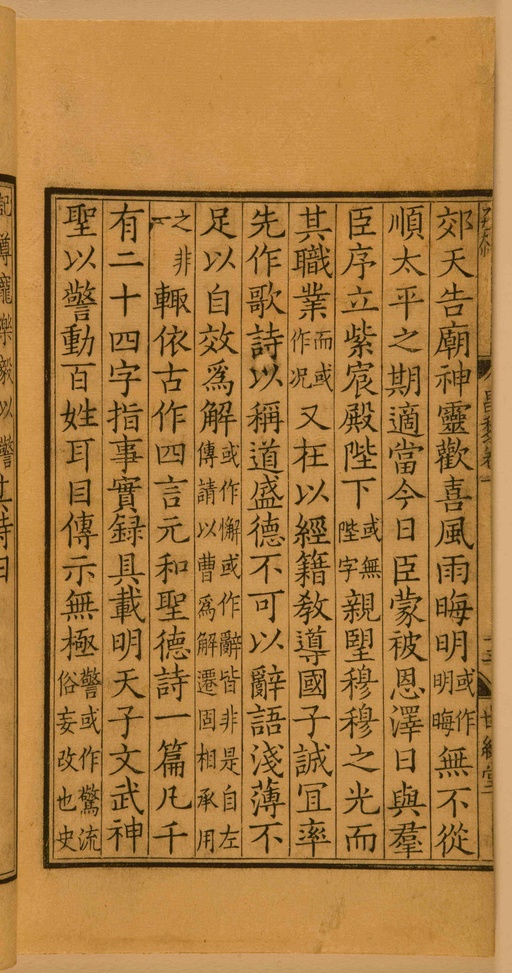 郊天告廟神靈歡喜風雨晦明或作明晦無不從
順太平之期適當今日臣蒙被恩澤日與羣
臣序立紫宸殿陛下或無陛字親朢穆穆之光而
其職業而或作況又在以經籍敎導國子誠冝率
先作歌詩以稱道盛德不可以辭語淺薄不
足以自效爲解或作懈或作辭皆非是自左傳請以曹爲解遷固相承用
之非一輙依古作四言元和聖德詩一篇凡千
有二十四字指事實録具載明天子文武神
聖以警動百姓耳目傳示無極警或作驚流俗妄改也史
記樽寵樂毅以警其詩曰